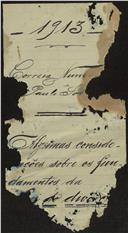 - 1913 -
Correia Nun
Paulo
Algumas conside-
rações sobre os fun
damentos da